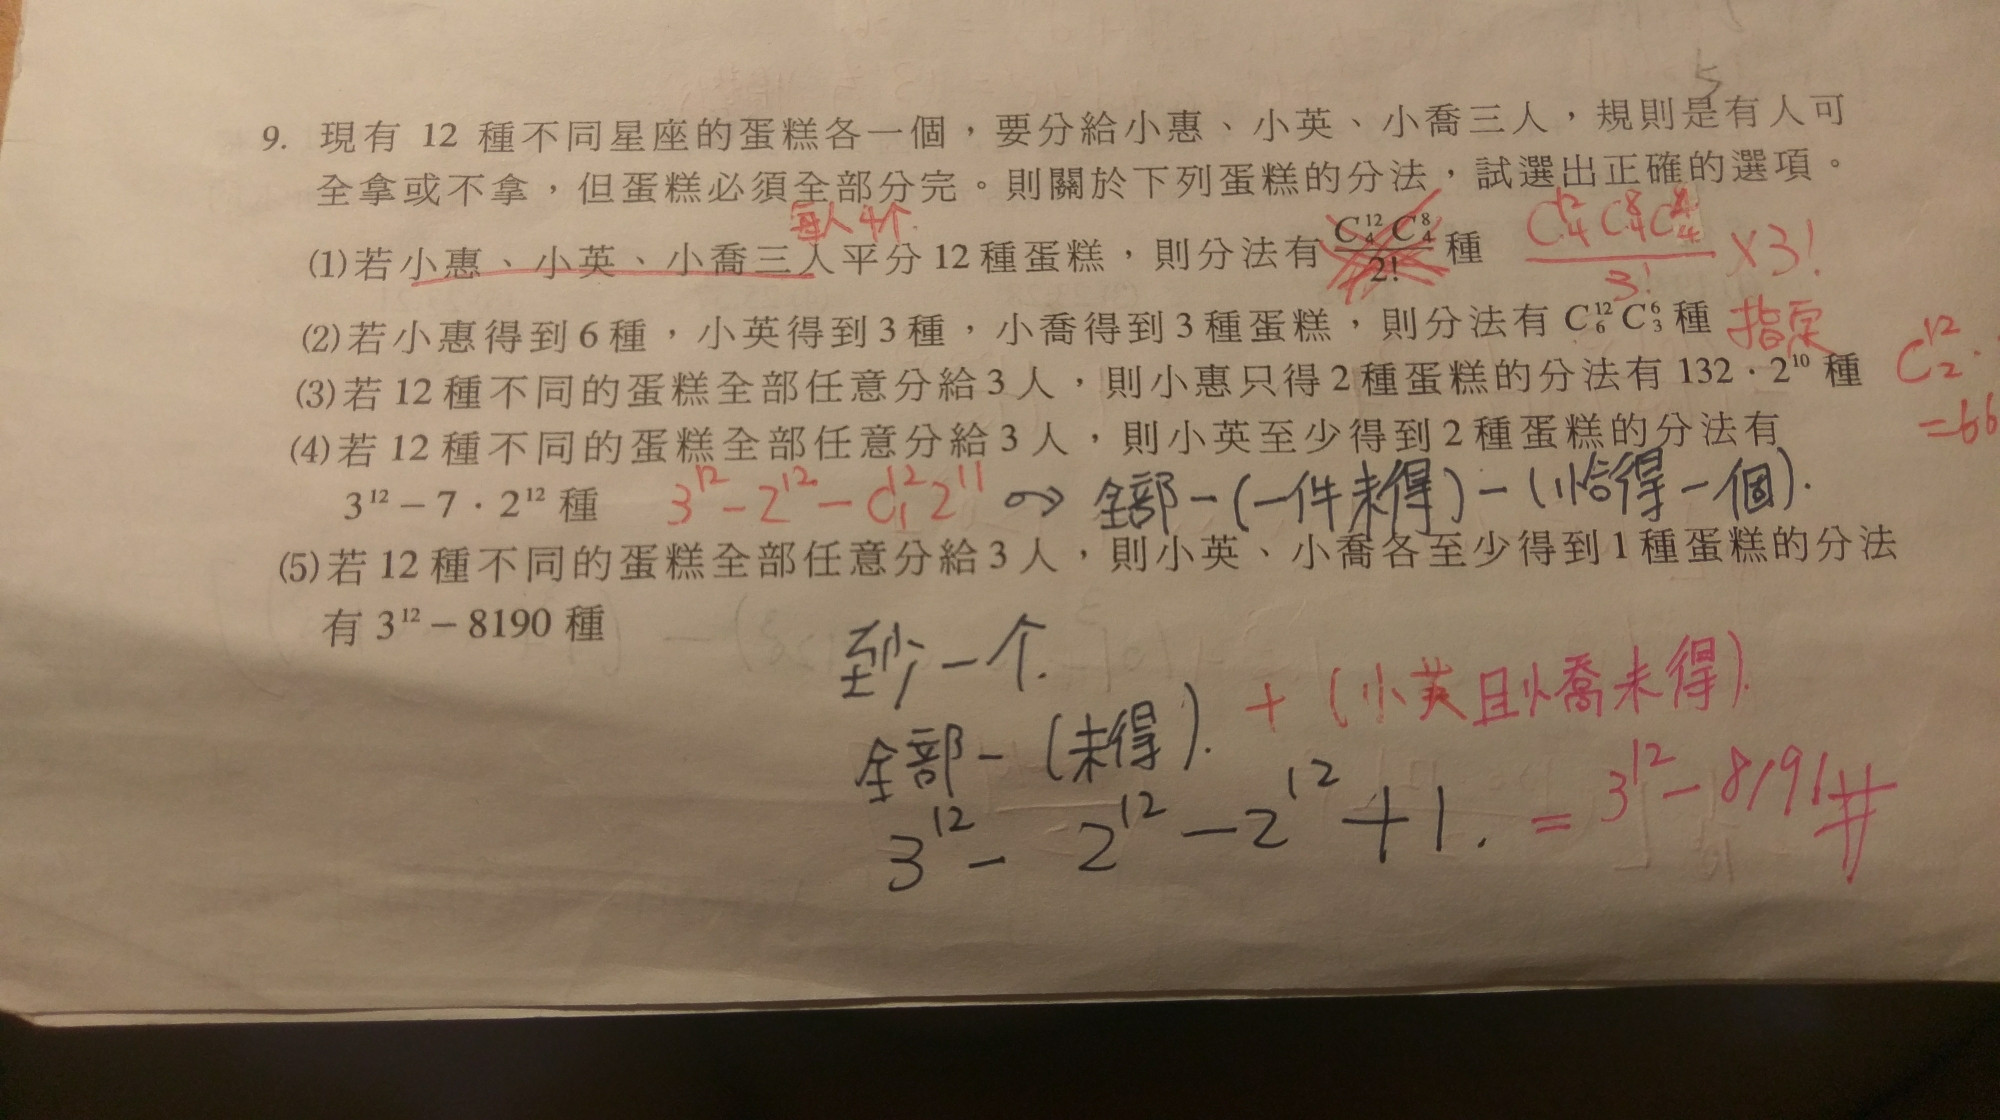 5
9. 現有 12 種不同星座的蛋糕各一個，要分給小惠、小英、小喬三人，規則是有人可
全拿或不拿，但蛋糕必須全部分完。則關於下列蛋糕的分法，試選出正確的選項。
每人4个
(1)若小惠、小英、小喬三人平分 12 種蛋糕，則分法有 C₄¹²C₄⁸/2! 種 C₄¹²C₄⁸C₄⁴/3! ×3!
(2)若小惠得到 6 種，小英得到 3 種，小喬得到 3 種蛋糕，則分法有 C₆¹²C₃⁶ 種 指定
(3)若 12 種不同的蛋糕全部任意分給 3 人，則小惠只得 2 種蛋糕的分法有 132 · 2¹⁰ 種 C₂¹² ·
=66
(4)若 12 種不同的蛋糕全部任意分給 3 人，則小英至少得到 2 種蛋糕的分法有
3¹² − 7 · 2¹² 種 3¹² − 2¹² − C₁¹² 2¹¹ 全部 − (一件未得) − (恰得一個).
(5)若 12 種不同的蛋糕全部任意分給 3 人，則小英、小喬各至少得到 1 種蛋糕的分法
有 3¹² − 8190 種
至少一个.
全部 − (未得). + (小英且小喬未得).
3¹² − 2¹² − 2¹² + 1. = 3¹² − 8191 #